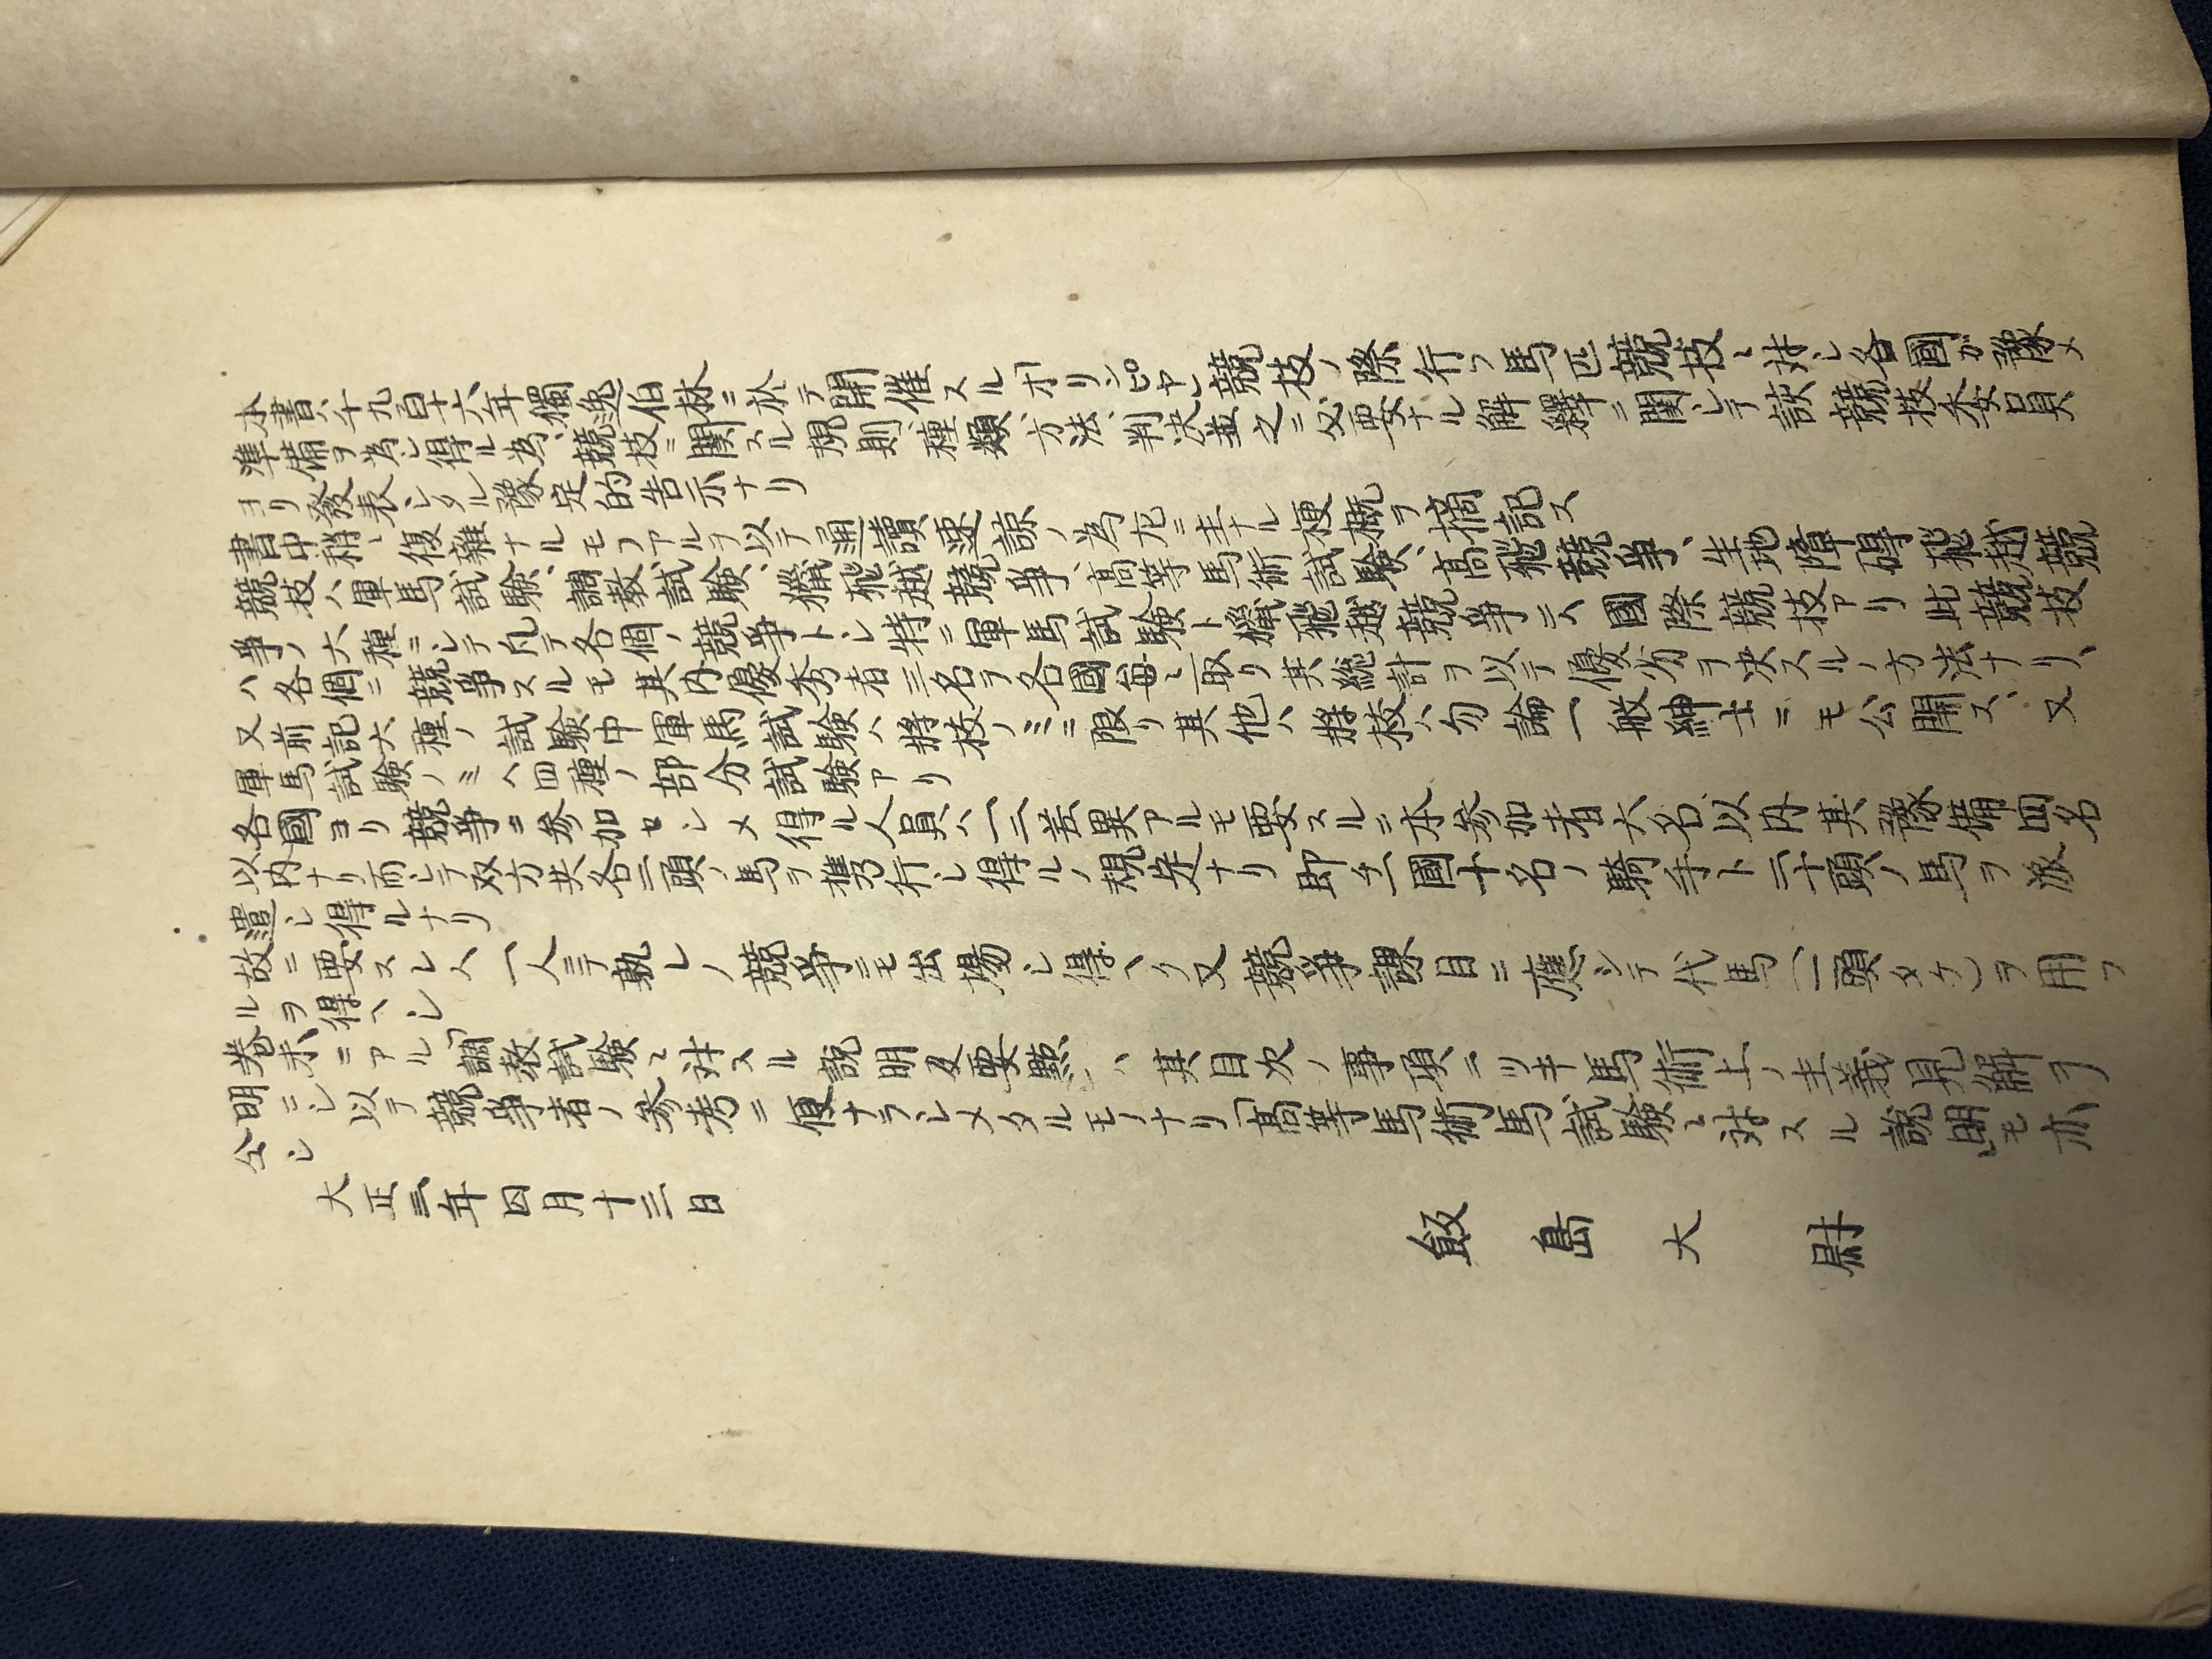 本書ハ千九百十六年獨逸伯林ニ於テ開催スル「オリンピヤン」競技ノ際行フ馬匹競技ニ対シ各國ガ豫メ
準備ヲ為シ得ル為、競技ニ關スル規則、種類、方法、判決並之ニ必要ナル解釋ニ関シテ該競技委員
ヨリ發表シタル豫定的告示ナリ
書中稍ヽ復雜ナルモノアルヲ以テ通讀速諒ノ為左ニ主ナル梗概ヲ摘記ス
競技ハ軍馬試驗、調教試驗、獵飛越競爭、高等馬術試驗、高飛競爭、生地障碍飛越競
爭ノ六種ニシテ凡テ各個ノ競爭トシ特ニ軍馬試驗ト獵飛越競爭ニハ國際競技アリ此競技
ハ各個ニ競爭スルモ其内優秀者三名ヲ各國毎ニ取リ其総計ヲ以テ優劣ヲ決スルノ方法ナリ、
又前記六種ノ試驗中軍馬試驗ハ將校ノミニ限リ其他ハ將校ハ勿論一般紳士ニモ公開ス、又
軍馬試驗ノミハ四種ノ部分試驗アリ
各國ヨリ競爭ニ参加セシメ得ル人員ハ一二差異アルモ要スルニ本参加者六名以内其豫備四名
以内ナリ而シテ双方共各二頭ノ馬ヲ携行シ得ルノ規定ナリ即チ一國十名ノ騎手ト二十頭ノ馬ヲ派
遣シ得ルナリ
故ニ要スレハ一人ニテ孰レノ競爭ニモ出場シ得ヘク又競爭課目ニ應シテ代馬（一頭タケ）ヲ用フ
ルヲ得ヘシ
卷末ニアル「調教試驗ニ対スル説明及要點」ハ其目次ノ事項ニツキ馬術上ノ主義見解ヲ
明ニシ以テ競爭者ノ参考ニ便ナラシメタルモノナリ「高等馬術馬試驗ニ対スル説明」モ亦
公シ
大正三年四月十三日
飯島大尉